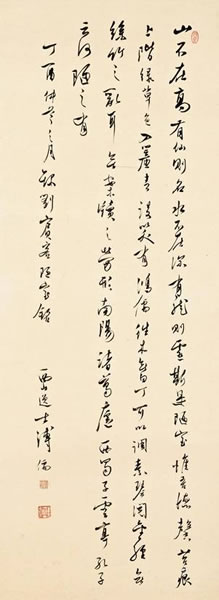 山不在高有仙則名水不在深有龍則靈斯是陋室惟吾德馨苔痕
上階綠草色入簾青談笑有鴻儒往來無白丁可以調素琴閱金經無
絲竹之亂耳無案牘之勞形南陽諸葛廬西蜀子雲亭孔子
云何陋之有
丁酉仲冬之月錄劉賓客陋室銘
西山逸士溥儒